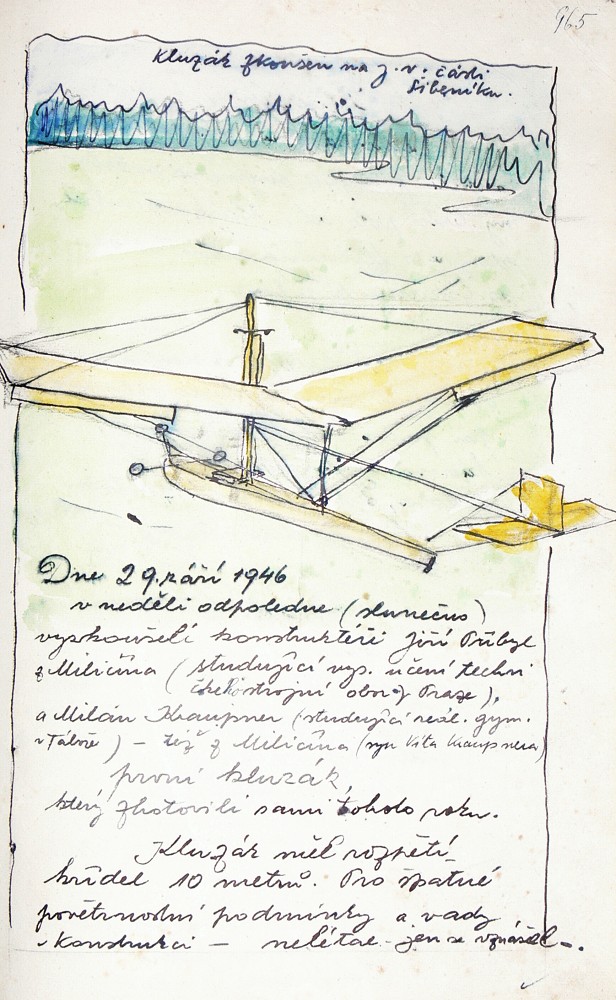 965
Kluzák zkoušen na j. v. části
Šibeníku.
Dne 29. září 1946
v neděli odpoledne (slunečno)
vyzkoušeli konstruktéři Jiří Přibyl
z Miličína (studující vys. učení techni
ckého strojní obor v Praze),
a Milan Kraupner (studující reál. gym.
v Táboře) – též z Miličína (syn Víta Kraupnera)
první kluzák
který zhotovili sami tohoto roku.
Kluzák měl rozpětí
křídel 10 metrů. Pro špatné
povětrnostní podmínky a vady
v konstrukci – nelétal – jen se vznášel –.